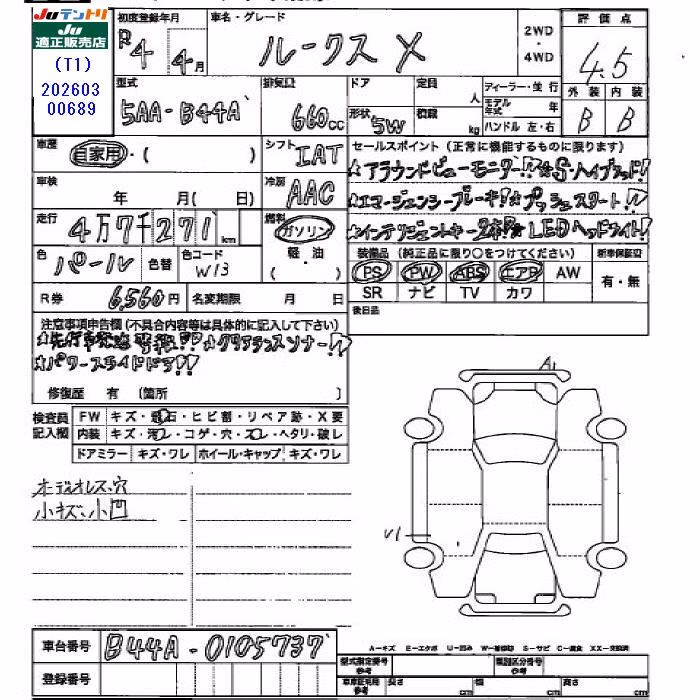 Juテントリ
Ju
適正販売店
(T1)
202603
00689
初度登録年月
R4年4月
車名・グレード
ルークス X
2WD
・
4WD
評価点
4.5
外装 内装
B B
型式
5AA-B44A
排気量
660cc
ドア
形状
5W
定員 人
積載 kg
ディーラー・並行
モデル年式 年
ハンドル 左・右
車歴
自家用・( )
シフト
IAT
セールスポイント(正常に機能するものに限ります)
☆アラウンドビューモニター!!☆S・ハイブリッド!!
☆エマージェンシーブレーキ!☆プッシュスタート!!
☆インテリジェントキー2本!!☆LEDヘッドライト!!
車検
年 月( 日)
冷房
AAC
走行
4万7千271km
燃料
ガソリン
軽・油
( )
色
パール
色替
色コード
W13
装備品(純正品に限り○をつけてください)
PS PW ABS エアB AW
SR ナビ TV カワ
新車保証書
有・無
R券 6,560円
名変期限 月 日
後日品
注意事項申告欄(不具合内容等は具体的に記入して下さい)
☆先行車発進 !!☆クリアランスソナー!!
☆パワースライドドア!!
修復歴 有(箇所 )
検査員
記入欄
FW キズ・飛石・ヒビ割・リペア跡・X要
内装 キズ・汚レ・コゲ・穴・スレ・ヘタリ・破レ
ドアミラー キズ・ワレ ホイール・キャップ キズ・ワレ
オーディオレス、穴
小キズ、小凹
A1
U1
A-キズ E-エクボ U-凹み W-補修跡 S-サビ C-腐食 XX-交換済
車台番号 B44A-0105737
登録番号
型式指定番号
参考
類別区分番号
参考
車庫証明用
参考
長さ cm 幅 cm 高さ cm